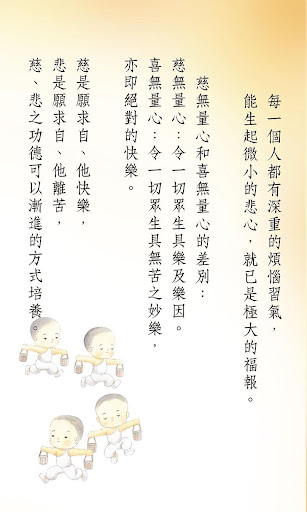 每一個人都有深重的煩惱習氣，
能生起微小的悲心，就已是極大的福報。
慈無量心和喜無量心的差別：
慈無量心：令一切眾生具樂及樂因。
喜無量心：令一切眾生具無苦之妙樂，
亦即絕對的快樂。
慈是願求自、他快樂，
悲是願求自、他離苦，
慈、悲之功德可以漸進的方式培養。